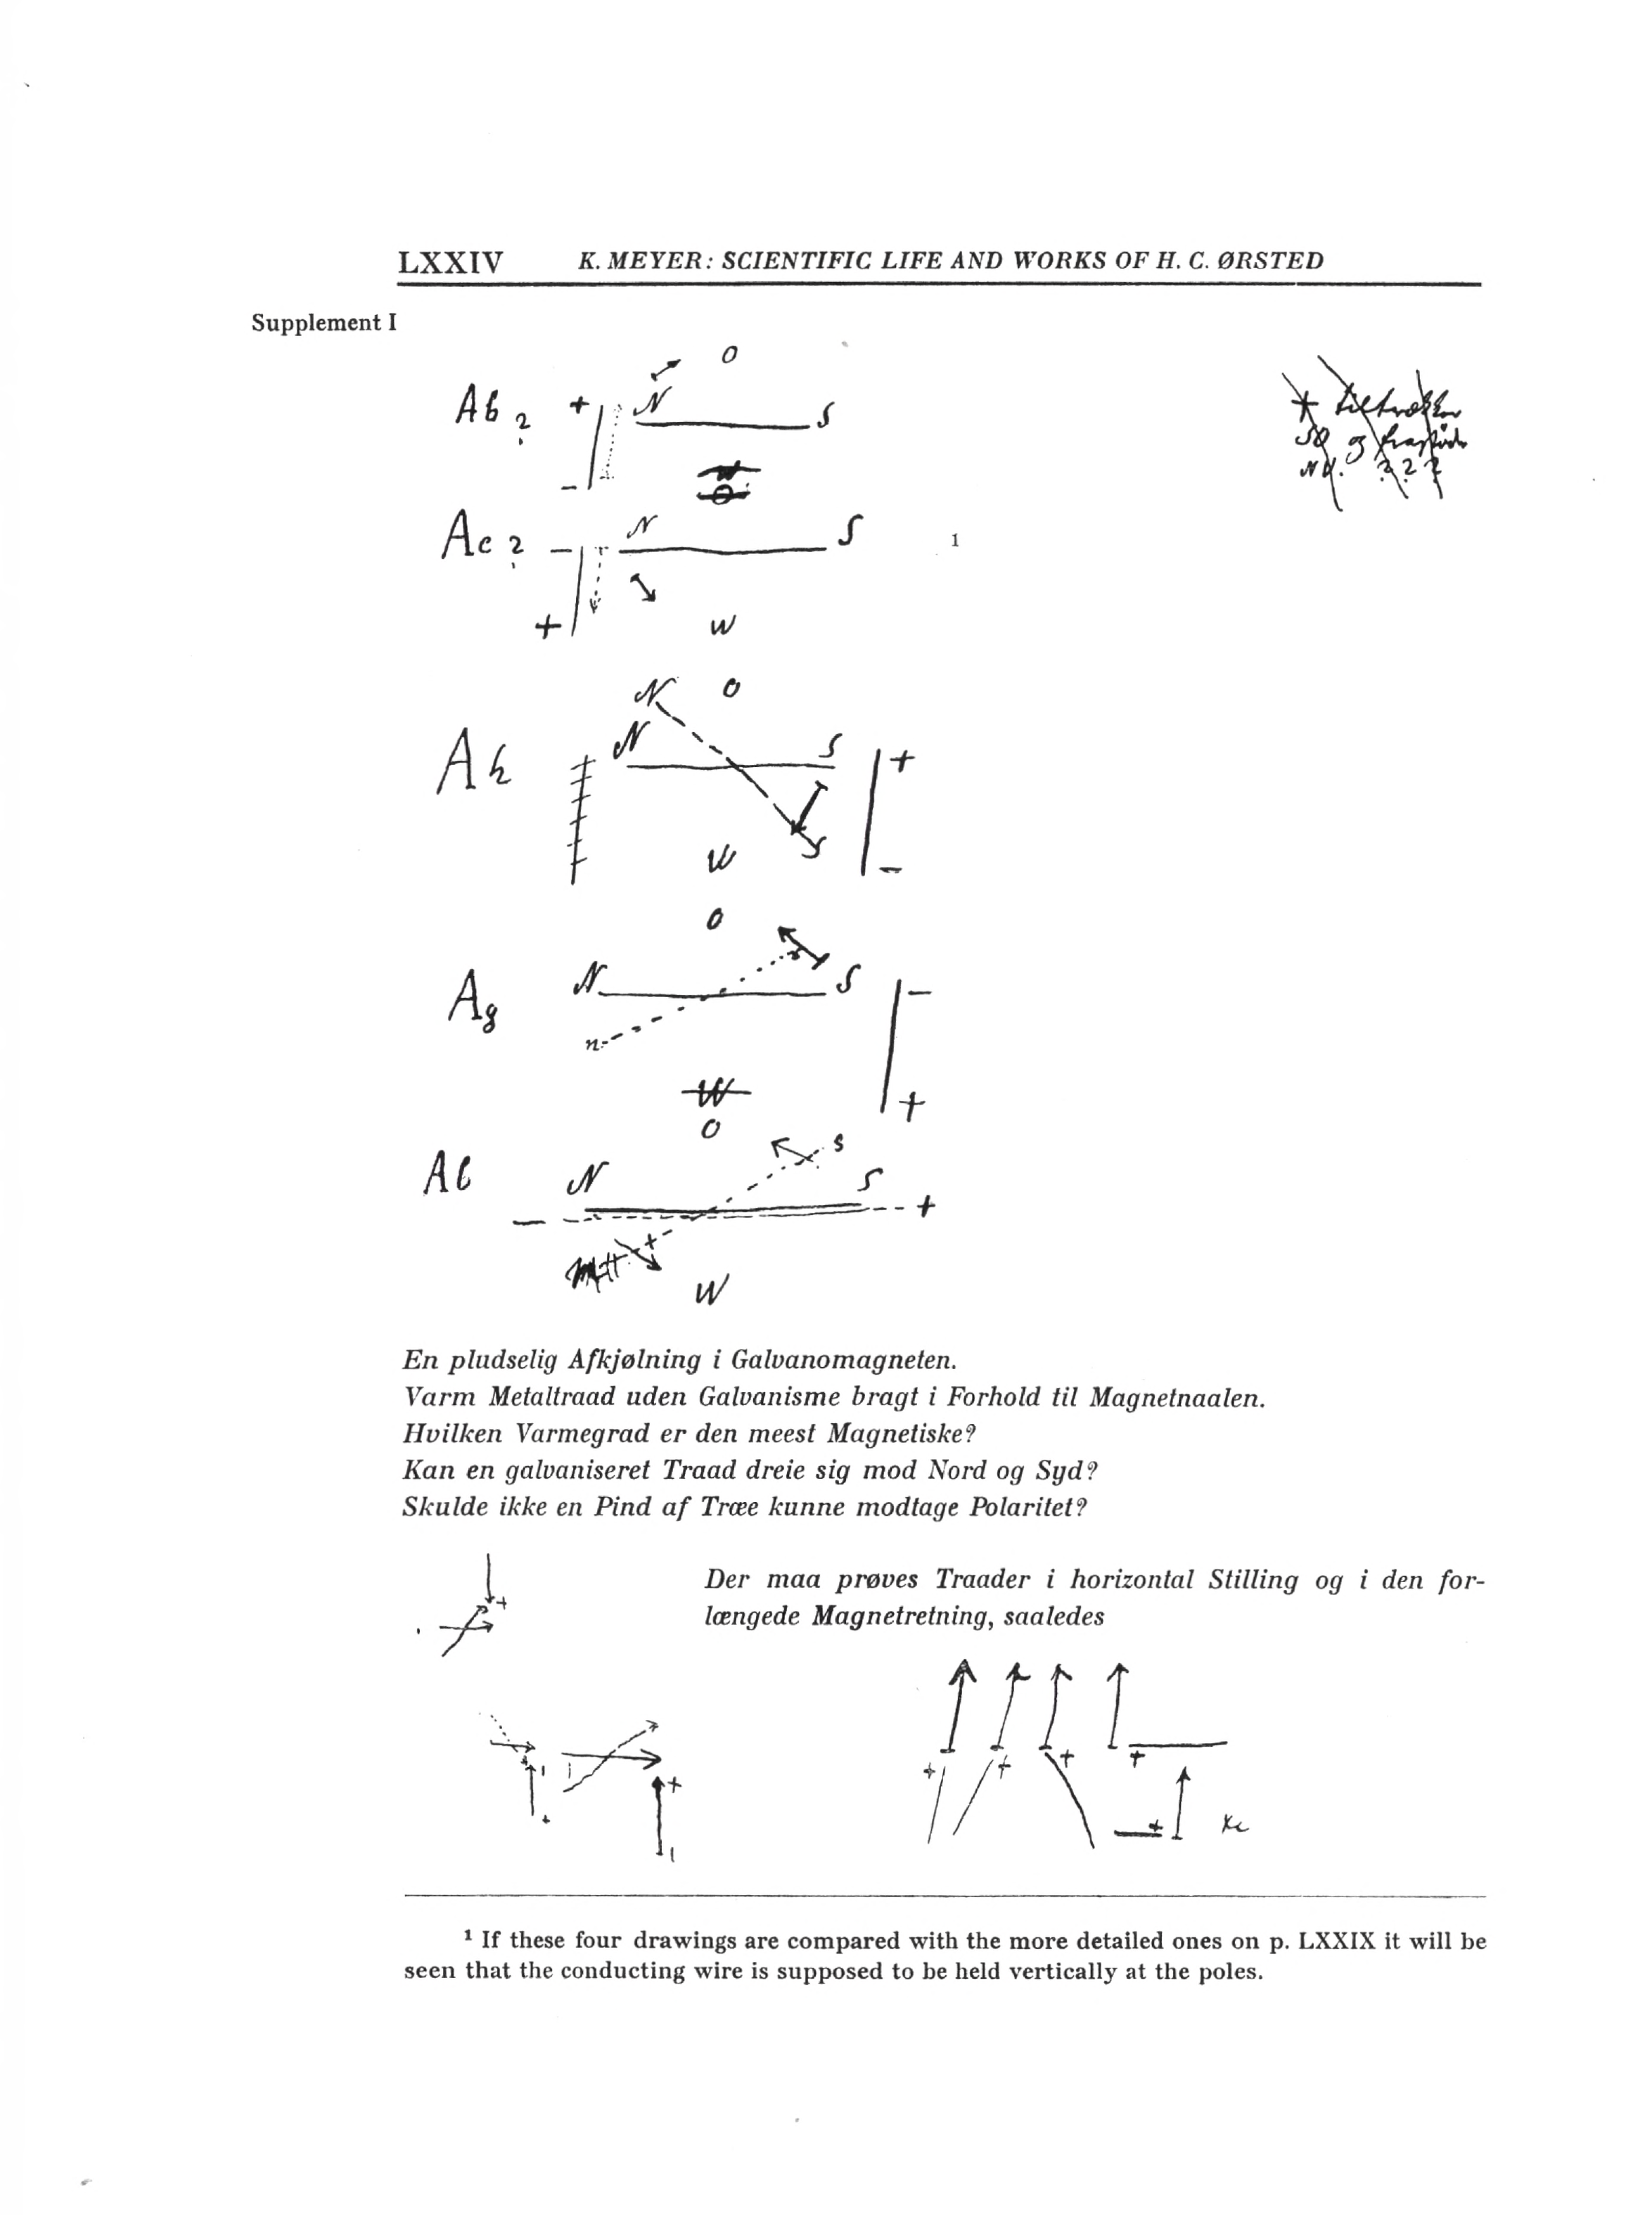 LXXIV K. MEYER: SCIENTIFIC LIFE AND WORKS OF H. C. ØRSTED
Supplement I
O
Ab 2 + N S
−
W
O
+ tiltrækker
SO og frastøder
NV. ? ? ?
Ac 2 − N S 1
+ W
N O
Ah N S +
W S −
O
Ag N S −
n
W +
O
s
Ab N S
− +
W
En pludselig Afkjølning i Galvanomagneten.
Varm Metaltraad uden Galvanisme bragt i Forhold til Magnetnaalen.
Hvilken Varmegrad er den meest Magnetiske?
Kan en galvaniseret Traad dreie sig mod Nord og Syd?
Skulde ikke en Pind af Træe kunne modtage Polaritet?
Der maa prøves Traader i horizontal Stilling og i den for-
længede Magnetretning, saaledes
+
+ + + +
+
+
+
1 If these four drawings are compared with the more detailed ones on p. LXXIX it will be
seen that the conducting wire is supposed to be held vertically at the poles.